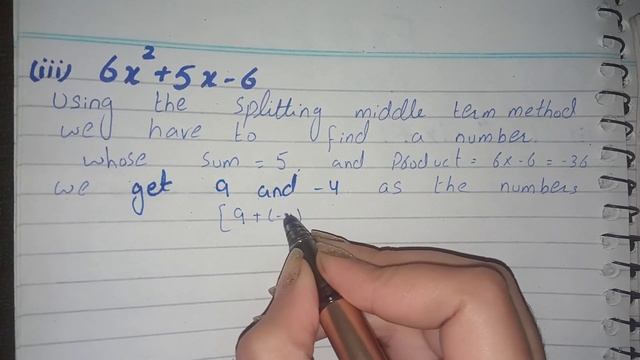 (iii) 6x²+5x-6
Using the splitting middle term method
we have to find a number
whose sum = 5 and Product = 6x-6 = -36
we get 9 and -4 as the numbers
[9+(-